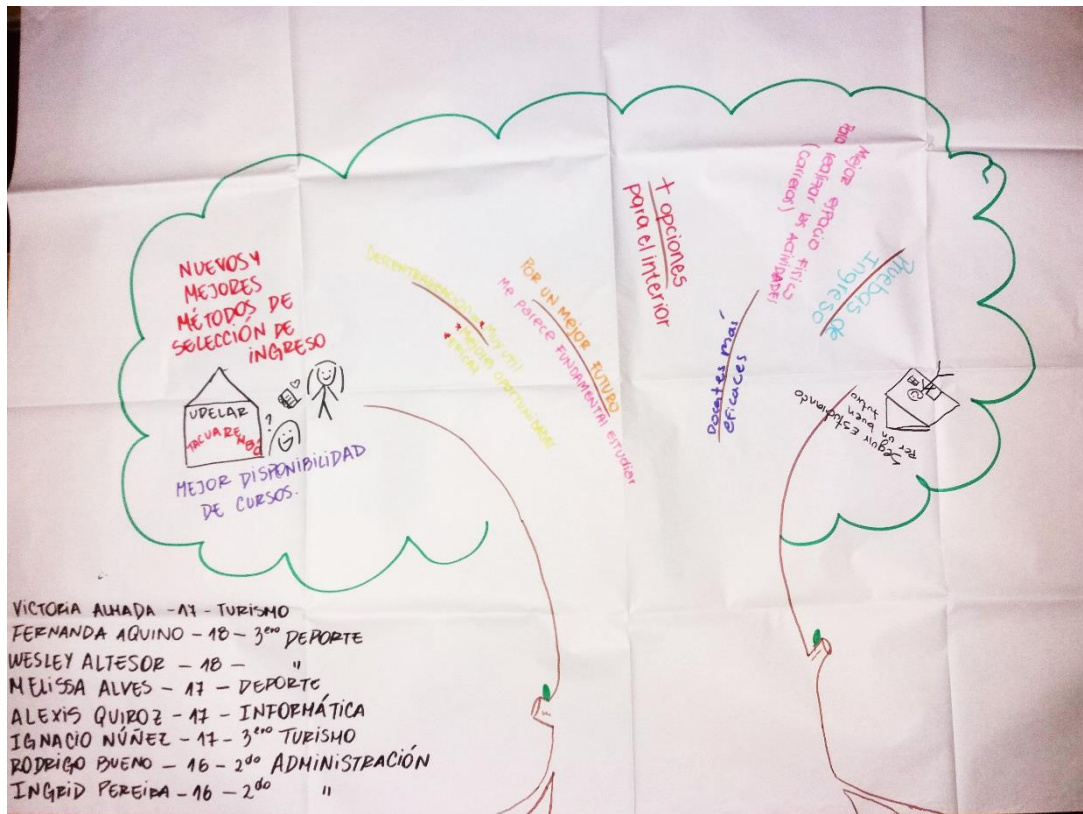 NUEVOS Y
MEJORES
MÉTODOS DE
SELECCIÓN DE
INGRESO
UDELAR
TACUAREMBÓ
?
MEJOR DISPONIBILIDAD
DE CURSOS.
MUY ÚTIL
POR UN MEJOR FUTURO
Me parece FUNDAMENTAL estudiar
+ opciones
para el interior
Docentes más
eficaces
Mejor espacio físico
para realizar las actividades
(carreras)
Pruebas de
Ingreso
Seguir Estudiando
Por un buen
futuro
VICTORIA ALHADA - 17 - TURISMO
FERNANDA AQUINO - 18 - 3ero DEPORTE
WESLEY ALTESOR - 18 - "
MELISSA ALVES - 17 - DEPORTE
ALEXIS QUIROZ - 17 - INFORMÁTICA
IGNACIO NÚÑEZ - 17 - 3ero TURISMO
RODRIGO BUENO - 16 - 2do ADMINISTRACIÓN
INGRID PEREIRA - 16 - 2do "